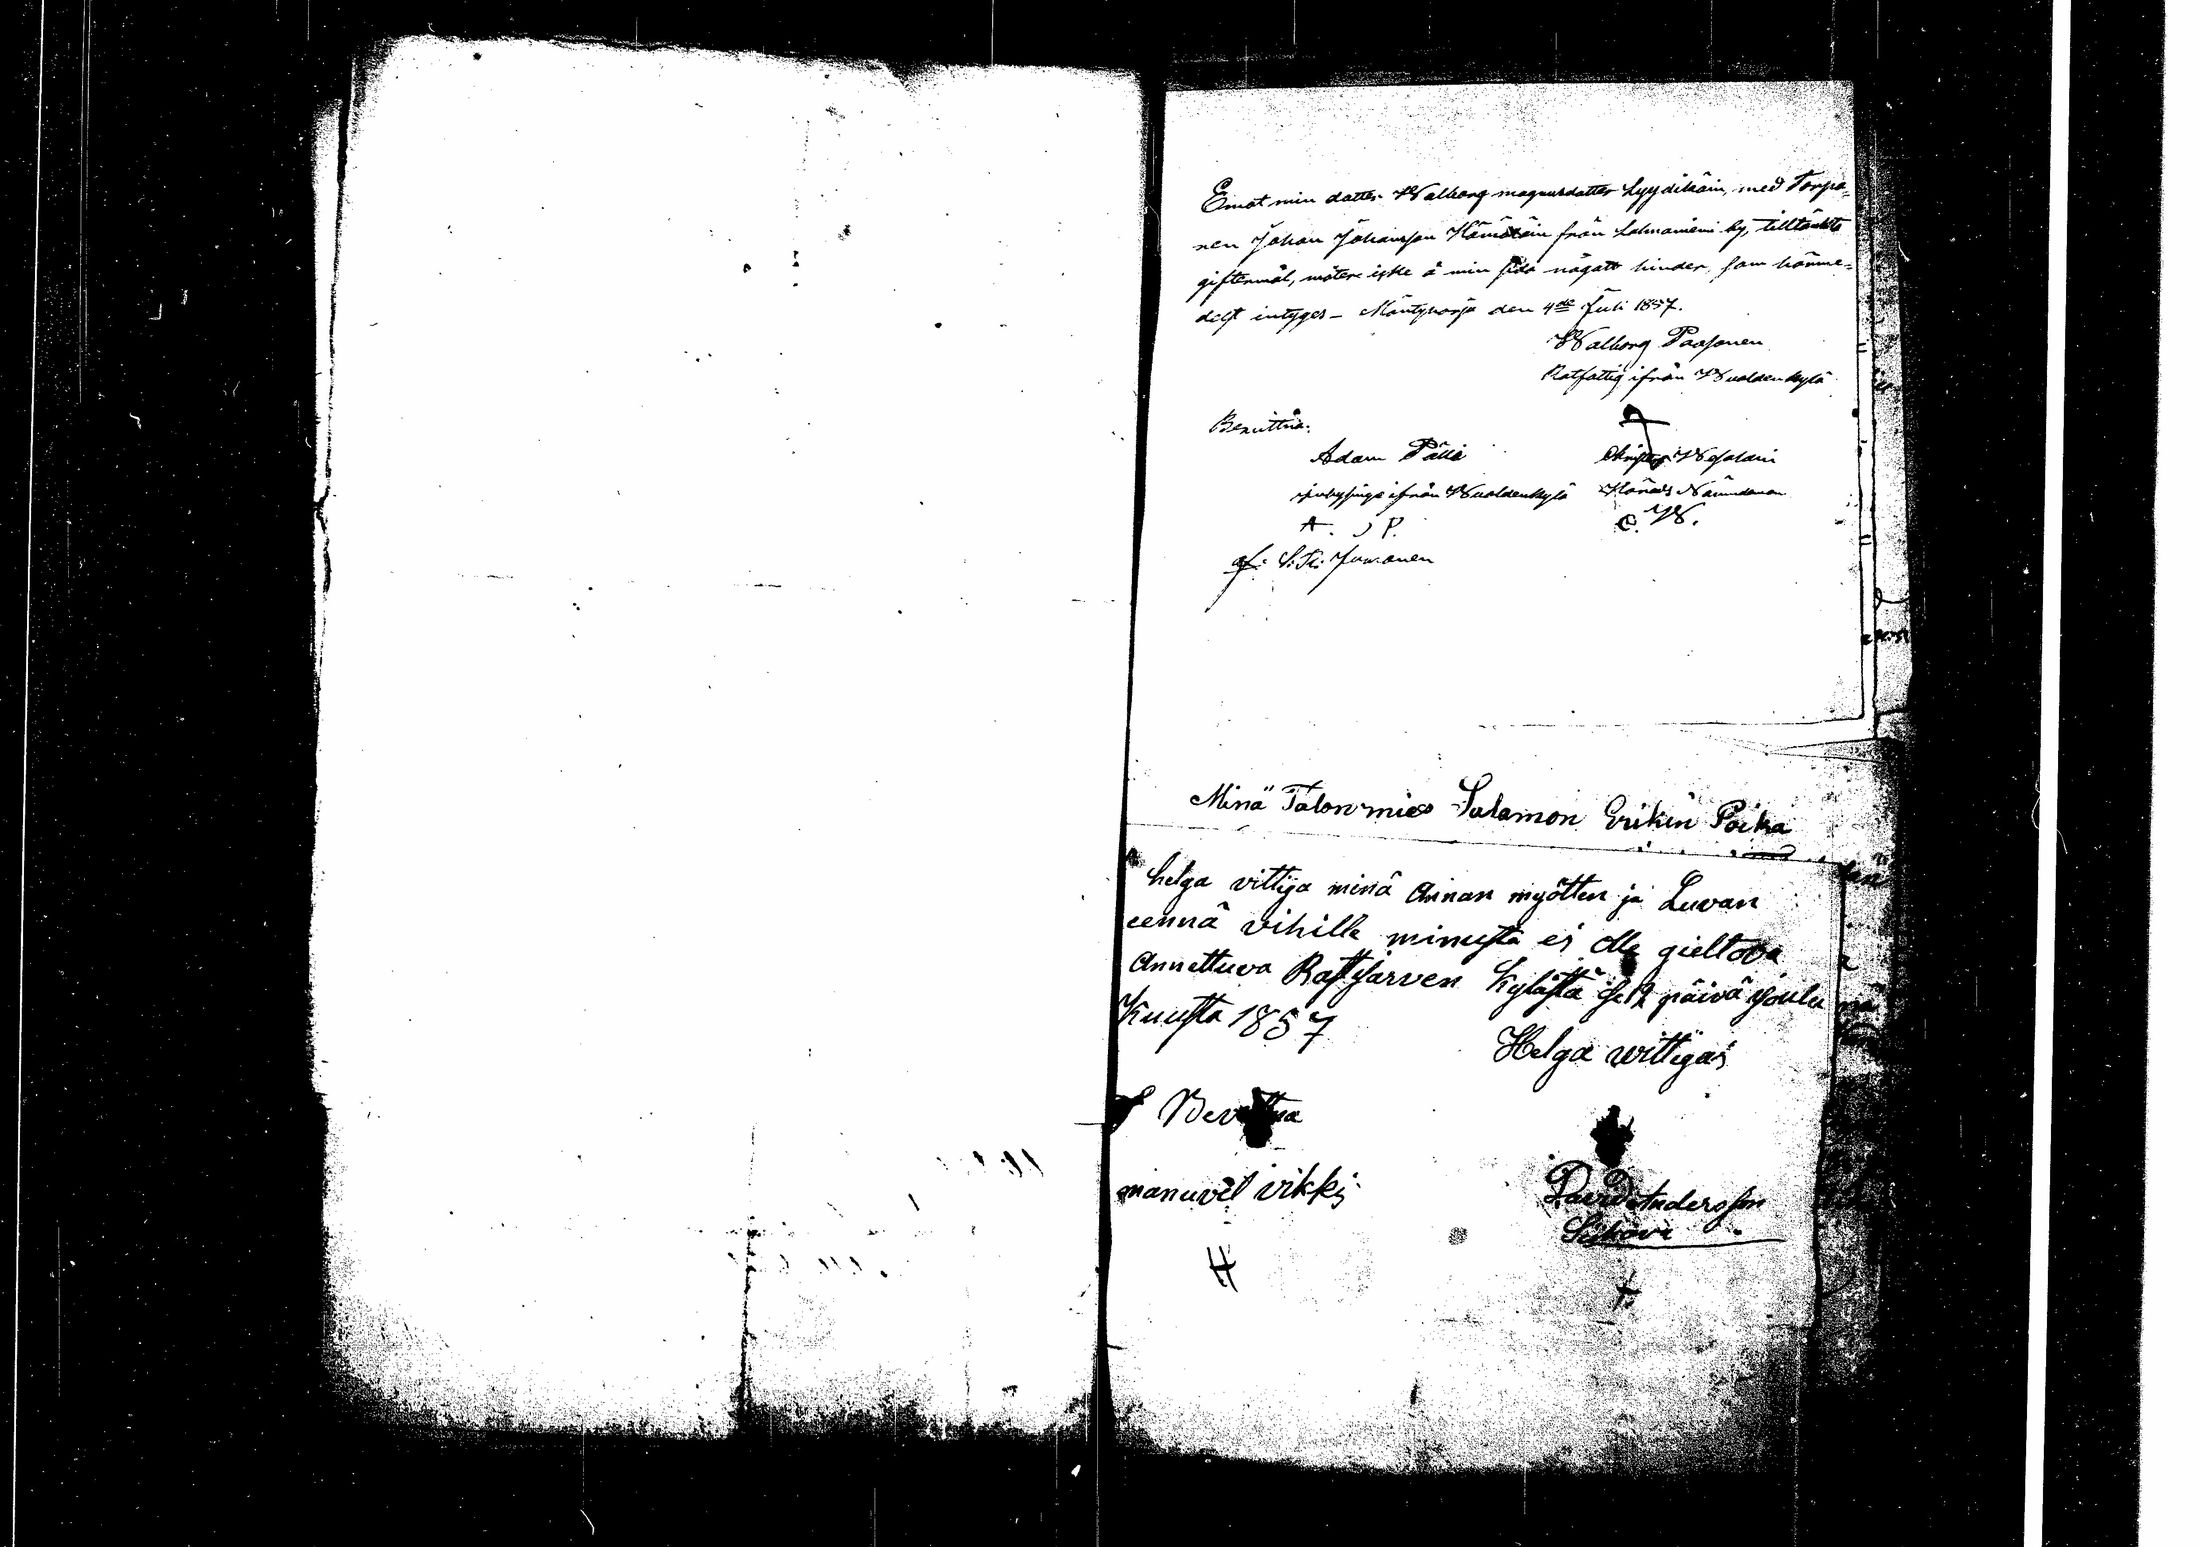 Emot min dotter Walborg magnusdotter Lyydikäin, med Torpa-
ren Johan Johansson Hämäläin från Lahnaniemi by, tilltänkta
giftermål, möter icke å min sida något hinder, som härme-
delst intyges – Mäntyharju den 4de Juli 1857.
Walborg Paasonen
Rotfattig ifrån Wuoldenkylä
Bevittna:
Adam Pälli
inhysinge ifrån Wuoldenkylä
A. P.
Härads Nämndeman
C. W.
af: Juvonen
Minä Talon mies Salamon Erikin Poika
helga vittija minä Annan myötten ja Luvan
cennä vihille minusta ei olle gieltova
Annettuva Rastijärven kylästä se 12 päivä joulu
Kuusta 1857
Helga vittijas
Bevittna
manuvel vikki
H
David Andersson